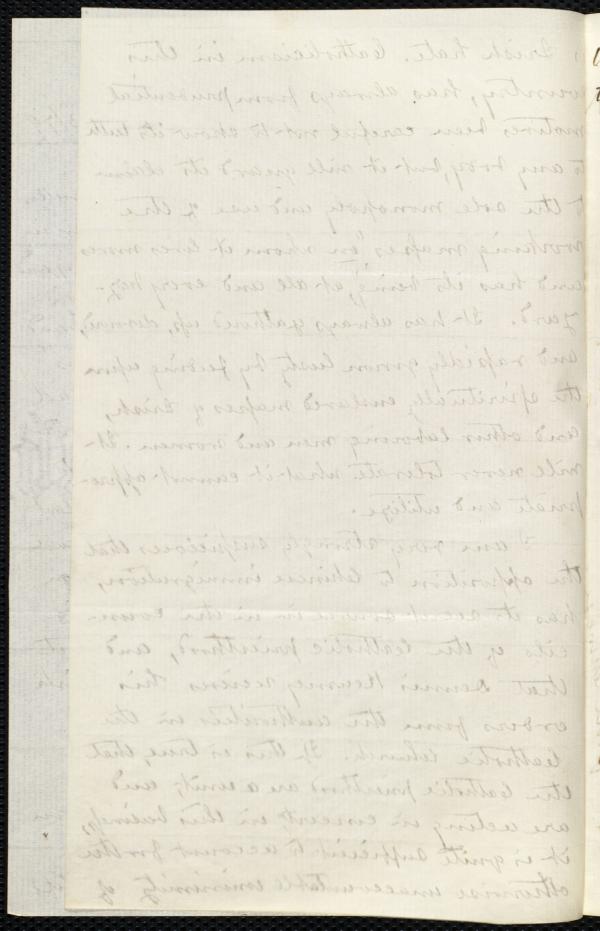 Irish hate. Catholicism in this
country, has always from prudential
motives been careful not to show its teeth
to any body, but it will guard its claim
to the sole monopoly and use of the
working masses "in whom it lives moves
and has its being", at all and every haz-
ard. It has always gathered up, 
and rapidly grown lusty by feeding upon
the spiritually enslaved masses of Irish,
and other laboring men and women. It
will never tolerate what it cannot appro-
priate and utilize.
I am very strongly suspicious that
the opposition to Chinese immigration,
has its in the coun-
cils of the Catholic priesthood, and,
that Dennis Kearney receives his
orders from the authorities in the
Catholic Church. If this is true, that
the Catholic priesthood are a unit, and
are acting in concert, in this business,
it is quite sufficient to account for the
otherwise unaccountable unanimity of